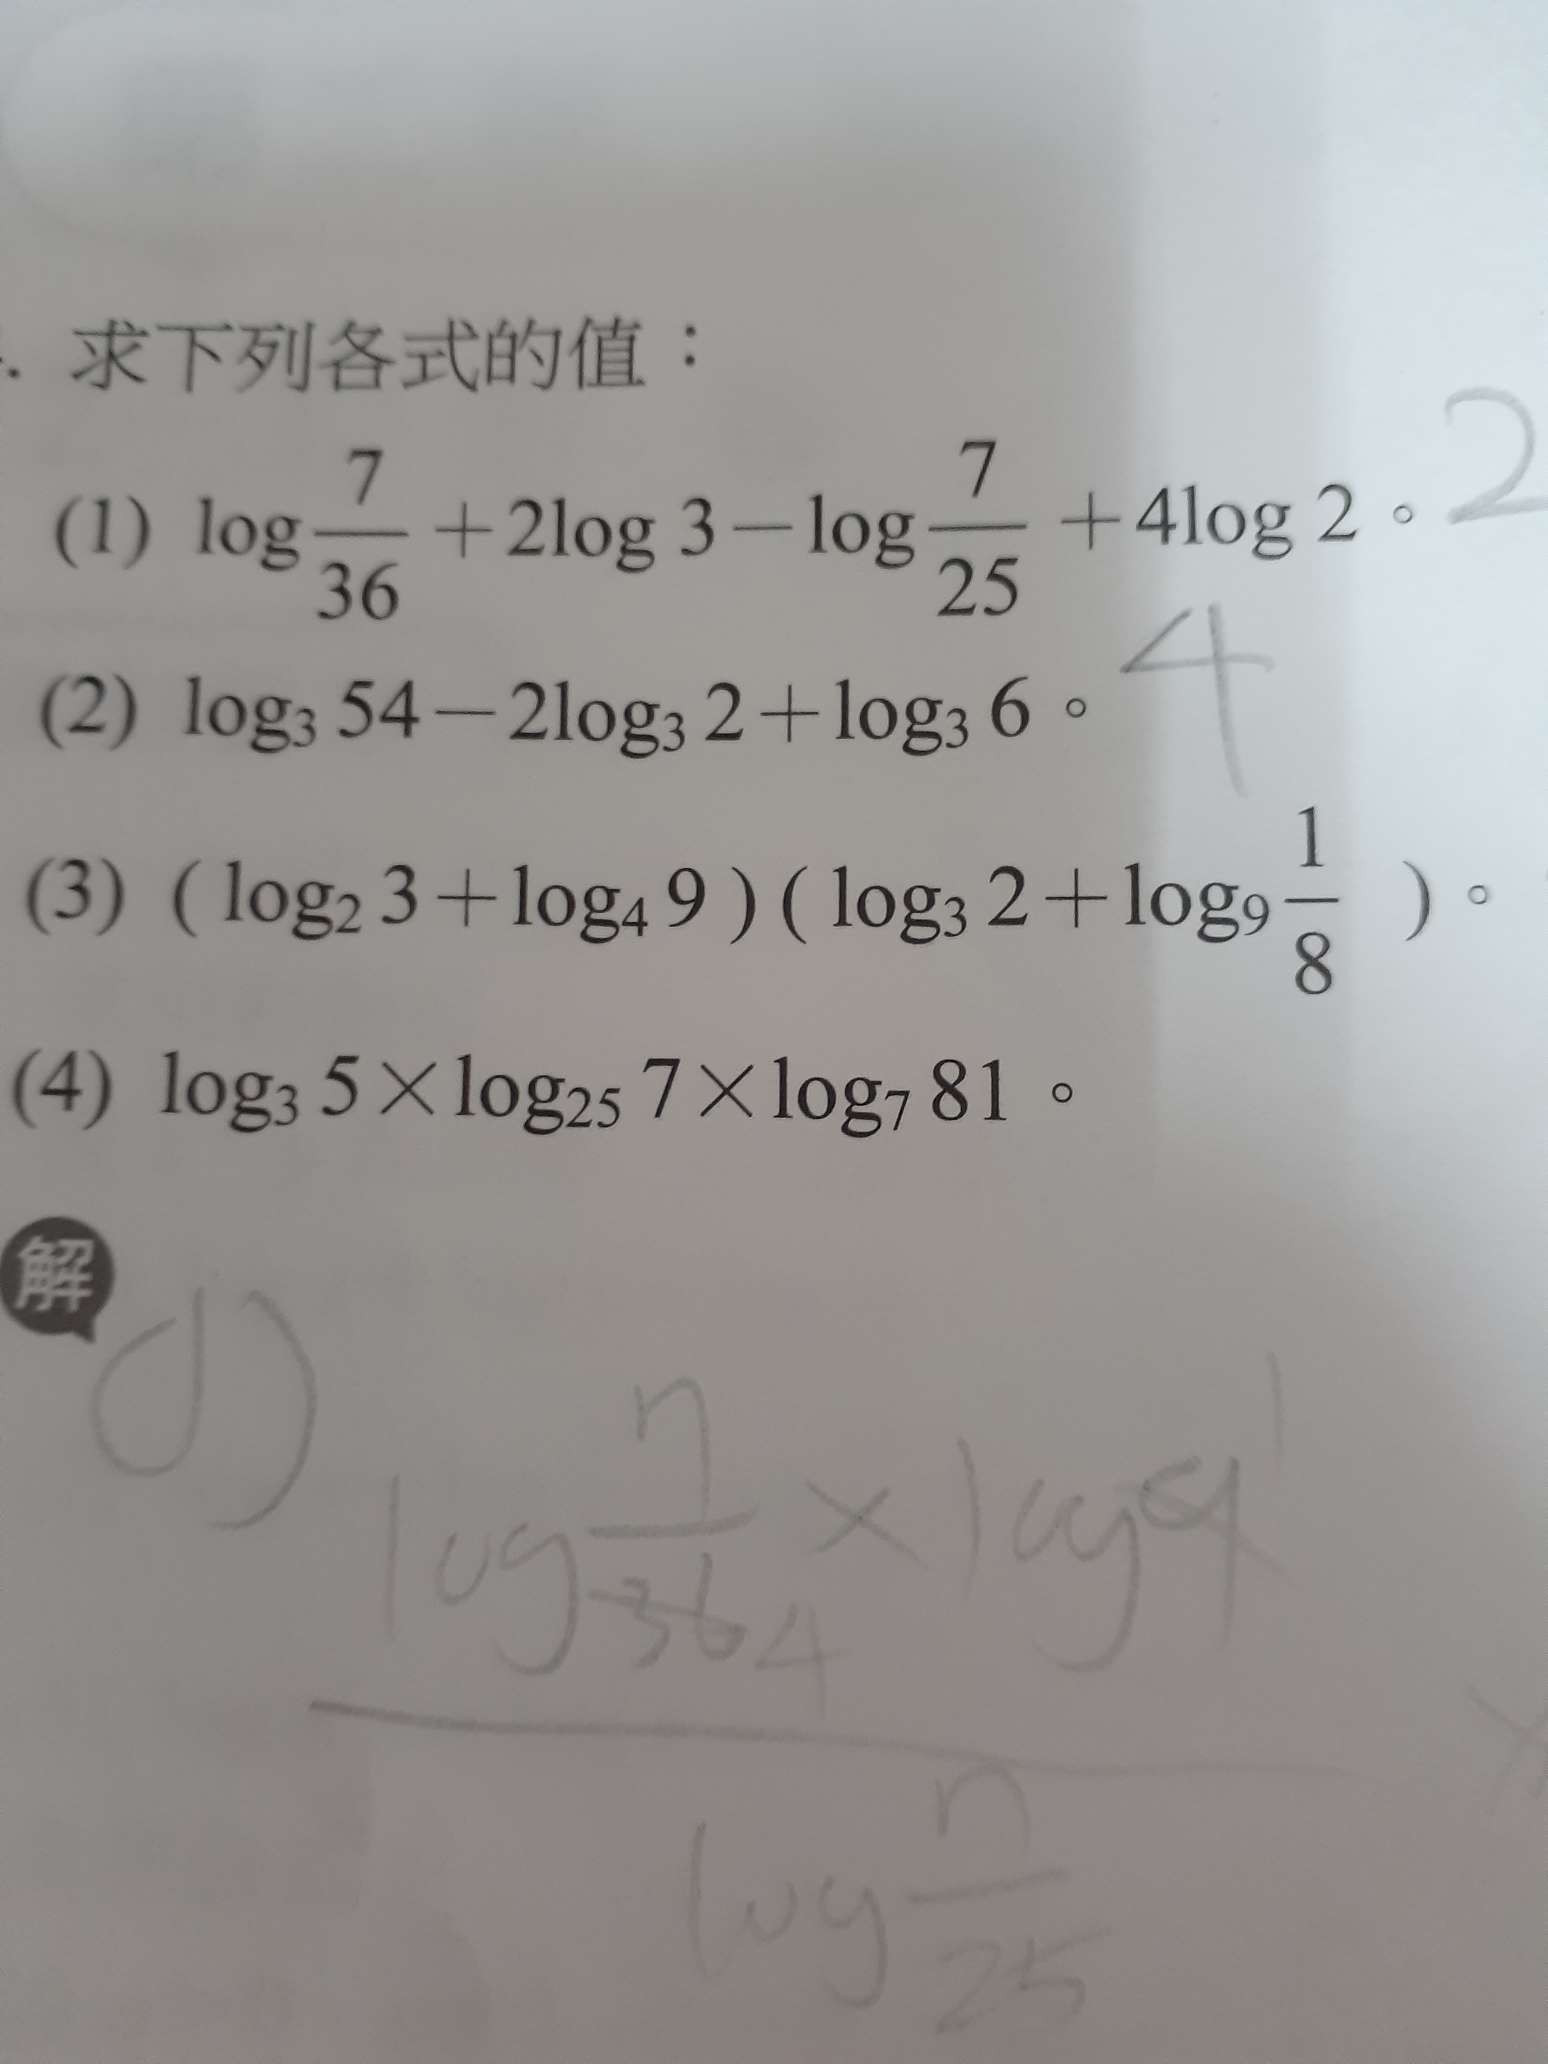 . 求下列各式的值：
(1) log 7/36 + 2log 3 − log 7/25 + 4log 2。 2
(2) log₃ 54 − 2log₃ 2 + log₃ 6。 4
(3) ( log₂ 3 + log₄ 9 ) ( log₃ 2 + log₉ 1/8 )。
(4) log₃ 5 × log₂₅ 7 × log₇ 81。
解
(1)
log 7/36 4 × log
log 7/25